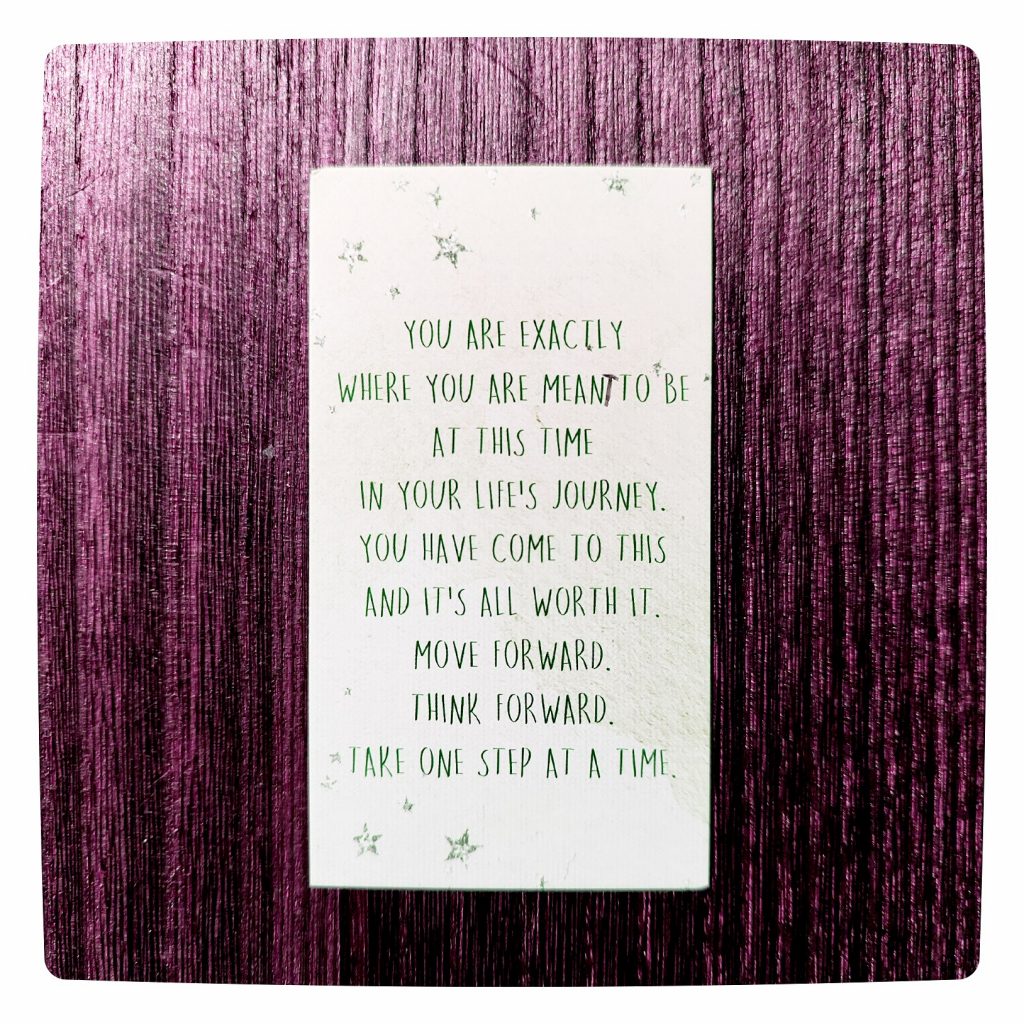 YOU ARE EXACTLY
WHERE YOU ARE MEANT TO BE
AT THIS TIME
IN YOUR LIFE'S JOURNEY.
YOU HAVE COME TO THIS
AND IT'S ALL WORTH IT.
MOVE FORWARD.
THINK FORWARD.
TAKE ONE STEP AT A TIME.